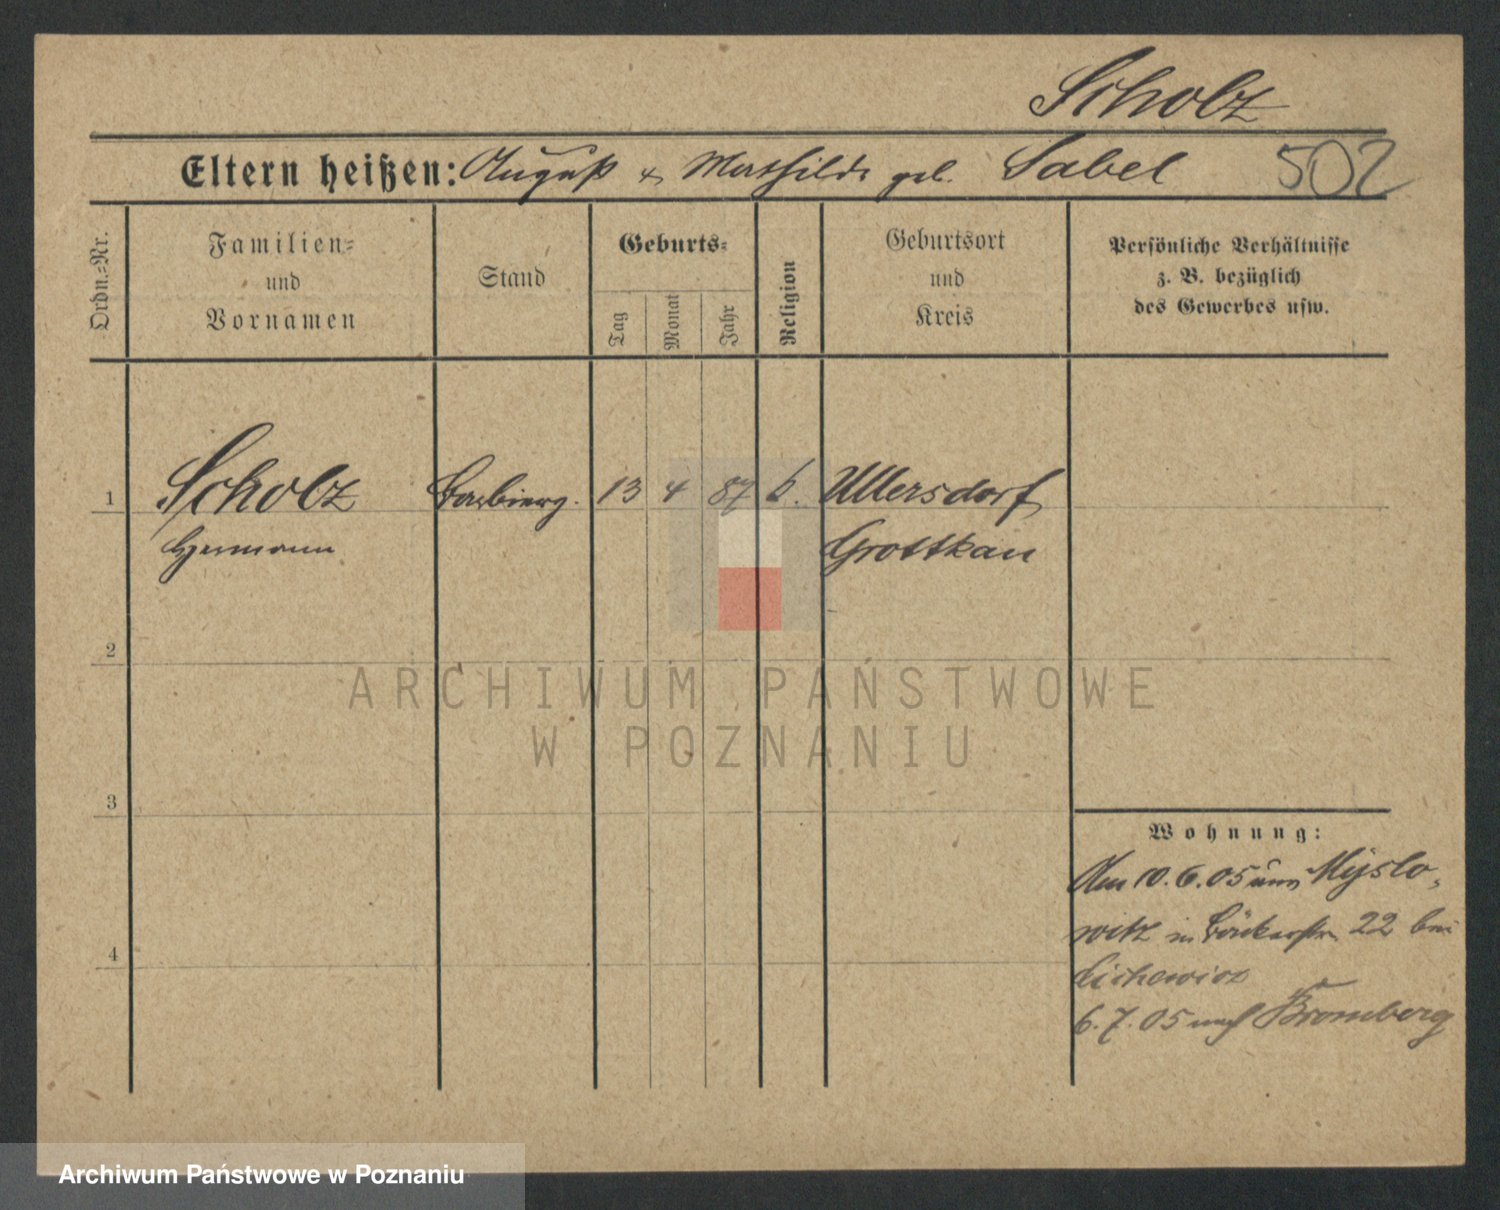 Scholz
Eltern heißen: August & Mathilde geb. Sabel 502
Ordn.=Nr.
Familien=
und
Vornamen
Stand
Geburts=
Tag
Monat
Jahr
Religion
Geburtsort
und
Kreis
Persönliche Verhältnisse
z. B. bezüglich
des Gewerbes usw.
1 Scholz Barbierg. 13 4 87 k. Ullersdorf
Hermann Grottkau
2
ARCHIWUM PAŃSTWOWE
W POZNANIU
3
Wohnung:
Am 10.6.05 von Myslo-
witz in Bäckerstr. 22 bei
4
6.7.05 nach Bromberg
Archiwum Państwowe w Poznaniu